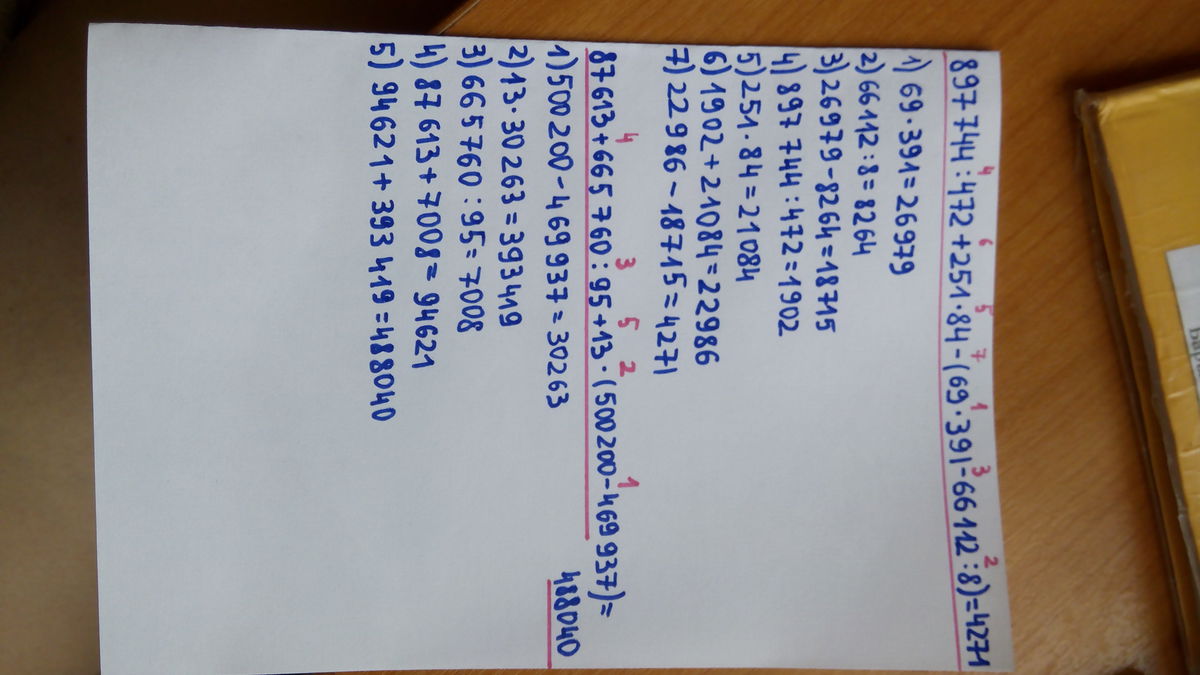 897 744:472+251·84-(69·391-66112:8)=4271
4 6 5 7 1 3 2
1) 69·391=26979
2) 66112:8=8264
3) 26979-8264=18715
4) 897 744:472=1902
5) 251·84=21084
6) 1902+21084=22986
7) 22986-18715=4271
4 3 5 2 1
87613+665760:95+13·(500200-469937)=
488040
1) 500200-469937=30263
2) 13·30263=393419
3) 665760:95=7008
4) 87613+7008=94621
5) 94621+393419=488040